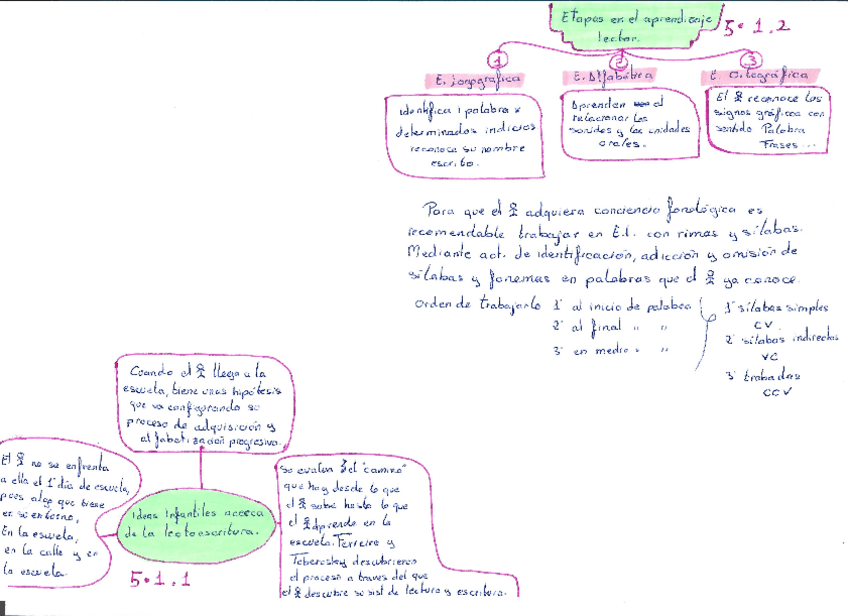 Etapas en el aprendizaje
lector.
5.1.2
1
E. Logográfica
Identifica 1 palabra x
determinados indicios
reconoce su nombre
escrito.
2
E. Alfabética
Aprenden el
relacionar los
sonidos y las unidades
orales.
3
E. Ortográfica
El reconoce los
signos gráficos con
sentido Palabra
Frases...
Para que el adquiera conciencia fonológica es
recomendable trabajar en E.I. con rimas y sílabas.
Mediante act. de identificación, adicción y omisión de
sílabas y fonemas en palabras que el ya conoce.
Orden de trabajarlo 1º al inicio de palabra
2º al final " "
3º en medio " "
1º sílabas simples
CV
2º sílabas indirectas
VC
3º trabadas
CCV
Cuando el llega a la
escuela, tiene unas hipótesis
que va configurando su
proceso de adquisición y
alfabetización progresiva.
El no se enfrenta
a ella el 1º día de escuela,
pues algo que tiene
en su entorno,
En la escuela,
en la calle y en
la escuela.
Ideas Infantiles acerca
de la lectoescritura.
5.1.1
Se evalua el "camino"
que hay desde lo que
el sabe hasta lo que
el aprende en la
escuela. Ferreiro y
Teberosky descubrieron
el proceso a traves del que
el descubre su sist de lectura y escritura.